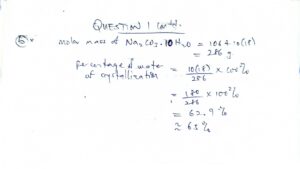 QUESTION 1 contd.
(b) molar mass of Na₂CO₃.10H₂O = 106 + 10(18)
= 286 g
percentage of water
of crystallization = 10(18)/286 x 100%
= 180/286 x 100%
= 62.9 %
≈ 63 %